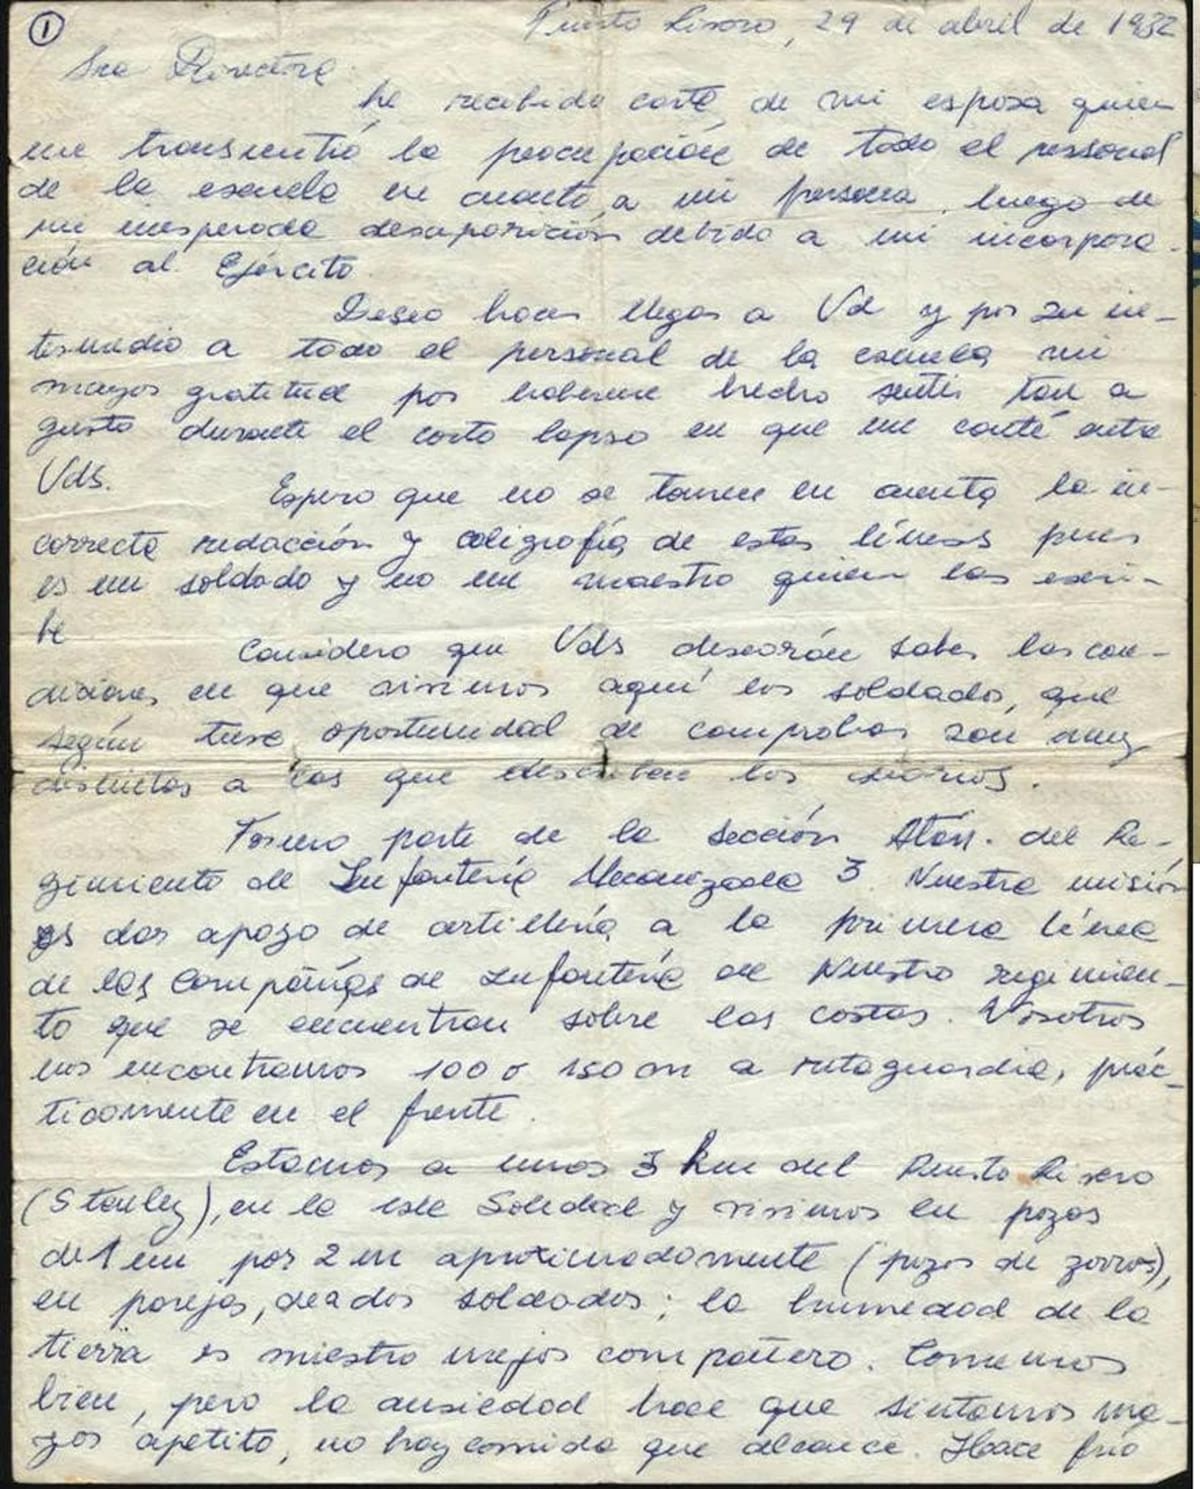 1
Puerto Rivero, 29 de abril de 1982
Sra Directora
he recibido carta de mi esposa quien
me transmitió la preocupación de todo el personal
de la escuela en cuanto a mi persona, luego de
mi inesperada desaparición debido a mi incorpora-
ción al Ejército.
Deseo hacer llegar a Vd y por su in-
termedio a todo el personal de la escuela mi
mayor gratitud por haberme hecho sentir tan a
gusto durante el corto lapso en que me conté entre
Vds.
Espero que no se tomen en cuenta la in-
correcta redacción y caligrafía de estas líneas pues
es un soldado y no un maestro quien las escri-
be
Considero que Vds desearán saber las con-
diciones en que vivimos aquí los soldados, que
según tuve oportunidad de comprobar son muy
distintas a las que describen los diarios.
Formo parte de la sección Atán. del Re-
gimiento de Infantería Mecanizada 3. Nuestra misión
es dar apoyo de artillería a la primera línea
de las Compañías de Infantería de Nuestro regimien-
to que se encuentran sobre las costas. Nosotros
nos encontramos 100 o 150 m a retaguardia, prác-
ticamente en el frente.
Estamos a unos 3 km del Puerto Rivero
(Stanley), en la isla Soledad y vivimos en pozos
de 1 m por 2 m aproximadamente (pozos de zorros),
en parejas, de a dos soldados; la humedad de la
tierra es nuestro mejor compañero. Comemos
bien, pero la ansiedad hace que sintamos ma-
yor apetito, no hay comida que alcance. Hace frío